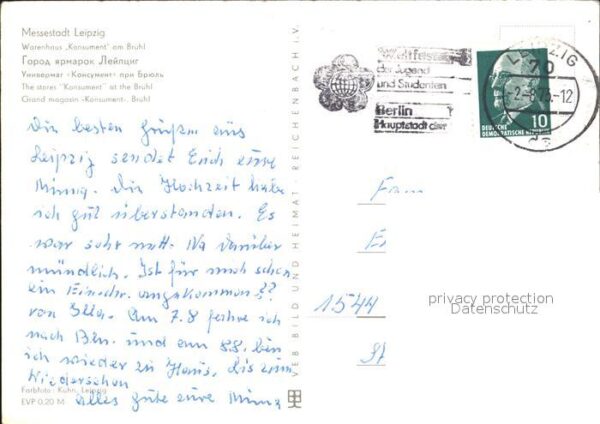 Messestadt Leipzig
Warenhaus „Konsument" am Brühl
Город ярмарок Лейпциг
Универмаг «Консумент» при Брюль
The stores "Konsument" at the Brühl
Grand magasin «Konsument» Brühl
Die besten Grüße aus
Leipzig sendet Euch eure
Minna. Die Hochzeit habe
ich gut überstanden. Es
war sehr nett. Na darüber
mündlich. Ist für mich schon
ein Einschr. angekommen??
von Ella. Am 7.8 fahre ich
nach Bln. und am 8.8. bin
ich wieder zu Haus, bis zum
Wiedersehen
alles gute eure Minna
Farbfoto: Kuhn, Leipzig
EVP 0,20 M
VEB BILD UND HEIMAT REICHENBACH i. V.
Weltfestspiele
der Jugend
und Studenten
Berlin
Hauptstadt der
LEIPZIG
70
-12
DEUTSCHE
DEMOKRATISCHE REPUBLIK
10
Frau
E
1544
St
privacy protection
Datenschutz